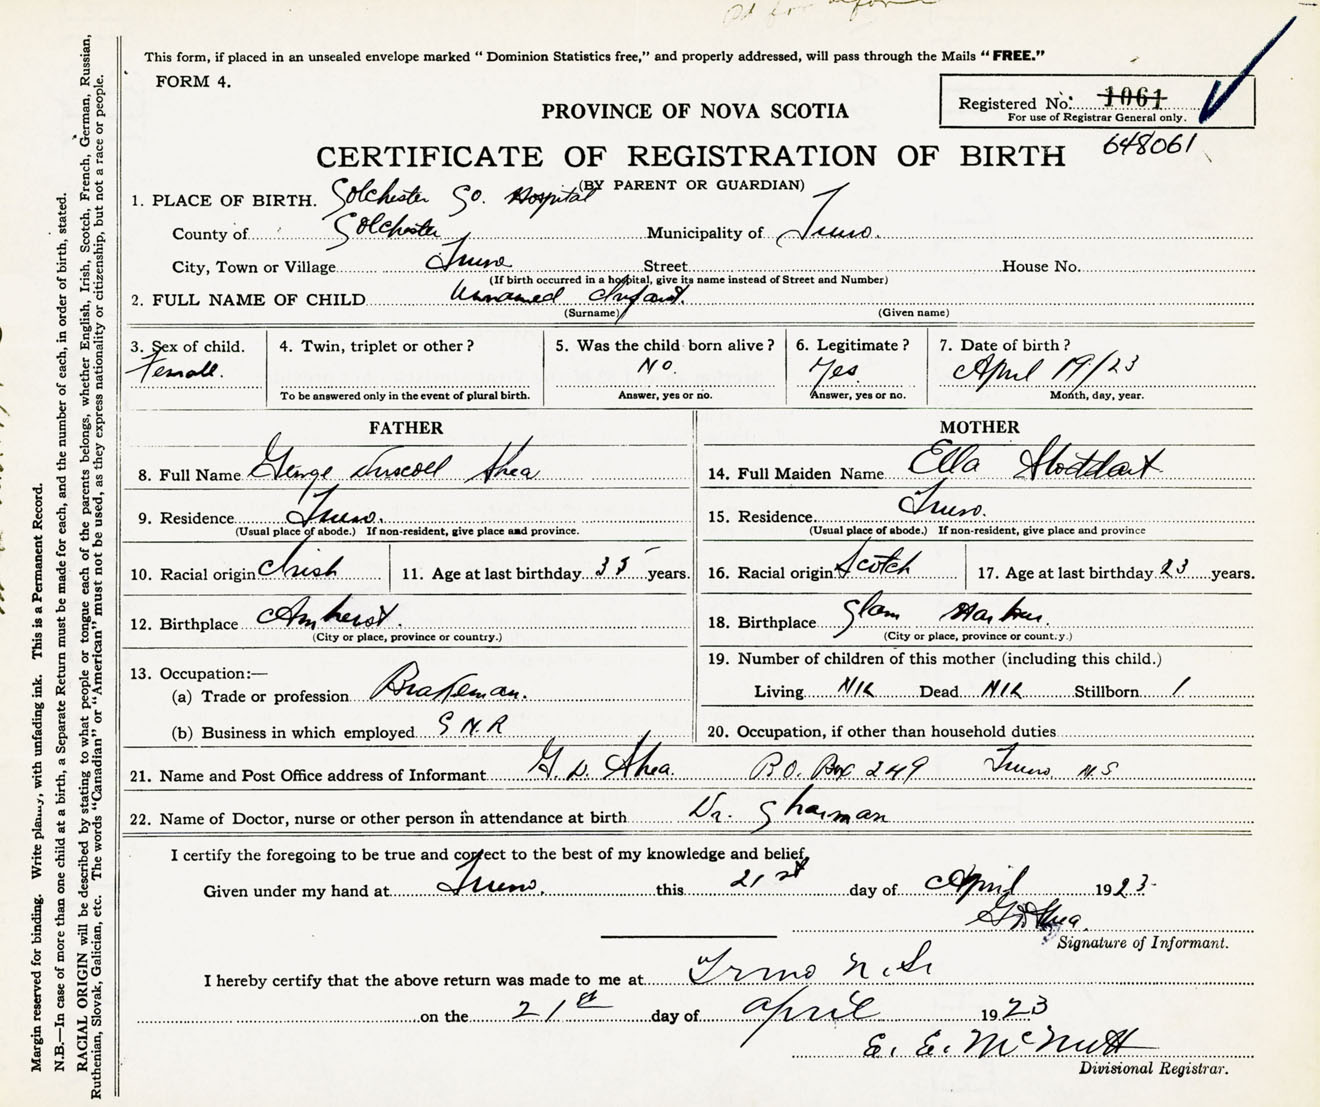 This form, if placed in an unsealed envelope marked “ Dominion Statistics free,” and properly addressed, will pass through the Mails “ FREE.”
FORM 4.
Registered No. 1061
For use of Registrar General only.
648061
PROVINCE OF NOVA SCOTIA
CERTIFICATE OF REGISTRATION OF BIRTH
(BY PARENT OR GUARDIAN)
1. PLACE OF BIRTH. Colchester Co. Hospital
County of Colchester Municipality of Truro.
City, Town or Village Truro Street House No.
(If birth occurred in a hospital, give its name instead of Street and Number)
2. FULL NAME OF CHILD Unnamed Infant.
(Surname) (Given name)
3. Sex of child. 4. Twin, triplet or other ? 5. Was the child born alive ? 6. Legitimate ? 7. Date of birth ?
Female. No. Yes April 19/23
To be answered only in the event of plural birth. Answer, yes or no. Answer, yes or no. Month, day, year.
FATHER MOTHER
8. Full Name George Driscoll Shea 14. Full Maiden Name Ella Stoddart
9. Residence Truro. 15. Residence Truro.
(Usual place of abode.) If non-resident, give place and province. (Usual place of abode.) If non-resident, give place and province
10. Racial origin Irish 11. Age at last birthday 35 years. 16. Racial origin Scotch 17. Age at last birthday 23 years.
12. Birthplace Amherst. 18. Birthplace Clam Harbor.
(City or place, province or country.) (City or place, province or count.y.)
13. Occupation:— 19. Number of children of this mother (including this child.)
(a) Trade or profession Brakeman. Living Nil Dead Nil Stillborn 1
(b) Business in which employed C N.R 20. Occupation, if other than household duties
21. Name and Post Office address of Informant G. D. Shea. P.O. Box 249 Truro N.S
22. Name of Doctor, nurse or other person in attendance at birth Dr. Sharman
I certify the foregoing to be true and correct to the best of my knowledge and belief,
Given under my hand at Truro, this 21st day of April 1923-
G D Shea.
Signature of Informant.
I hereby certify that the above return was made to me at Truro N.S.
on the 21st day of April 1923
E. E. McNutt
Divisional Registrar.
Margin reserved for binding. Write plainly, with unfading ink. This is a Permanent Record.
N.B.—In case of more than one child at a birth, a Separate Return must be made for each, and the number of each, in order of birth, stated.
RACIAL ORIGIN will be described by stating to what people or tongue each of the parents belongs, whether English, Irish, Scotch, French, German, Russian,
Ruthenian, Slovak, Galician, etc. The words “Canadian” or “American” must not be used, as they express nationality or citizenship, but not a race or people.